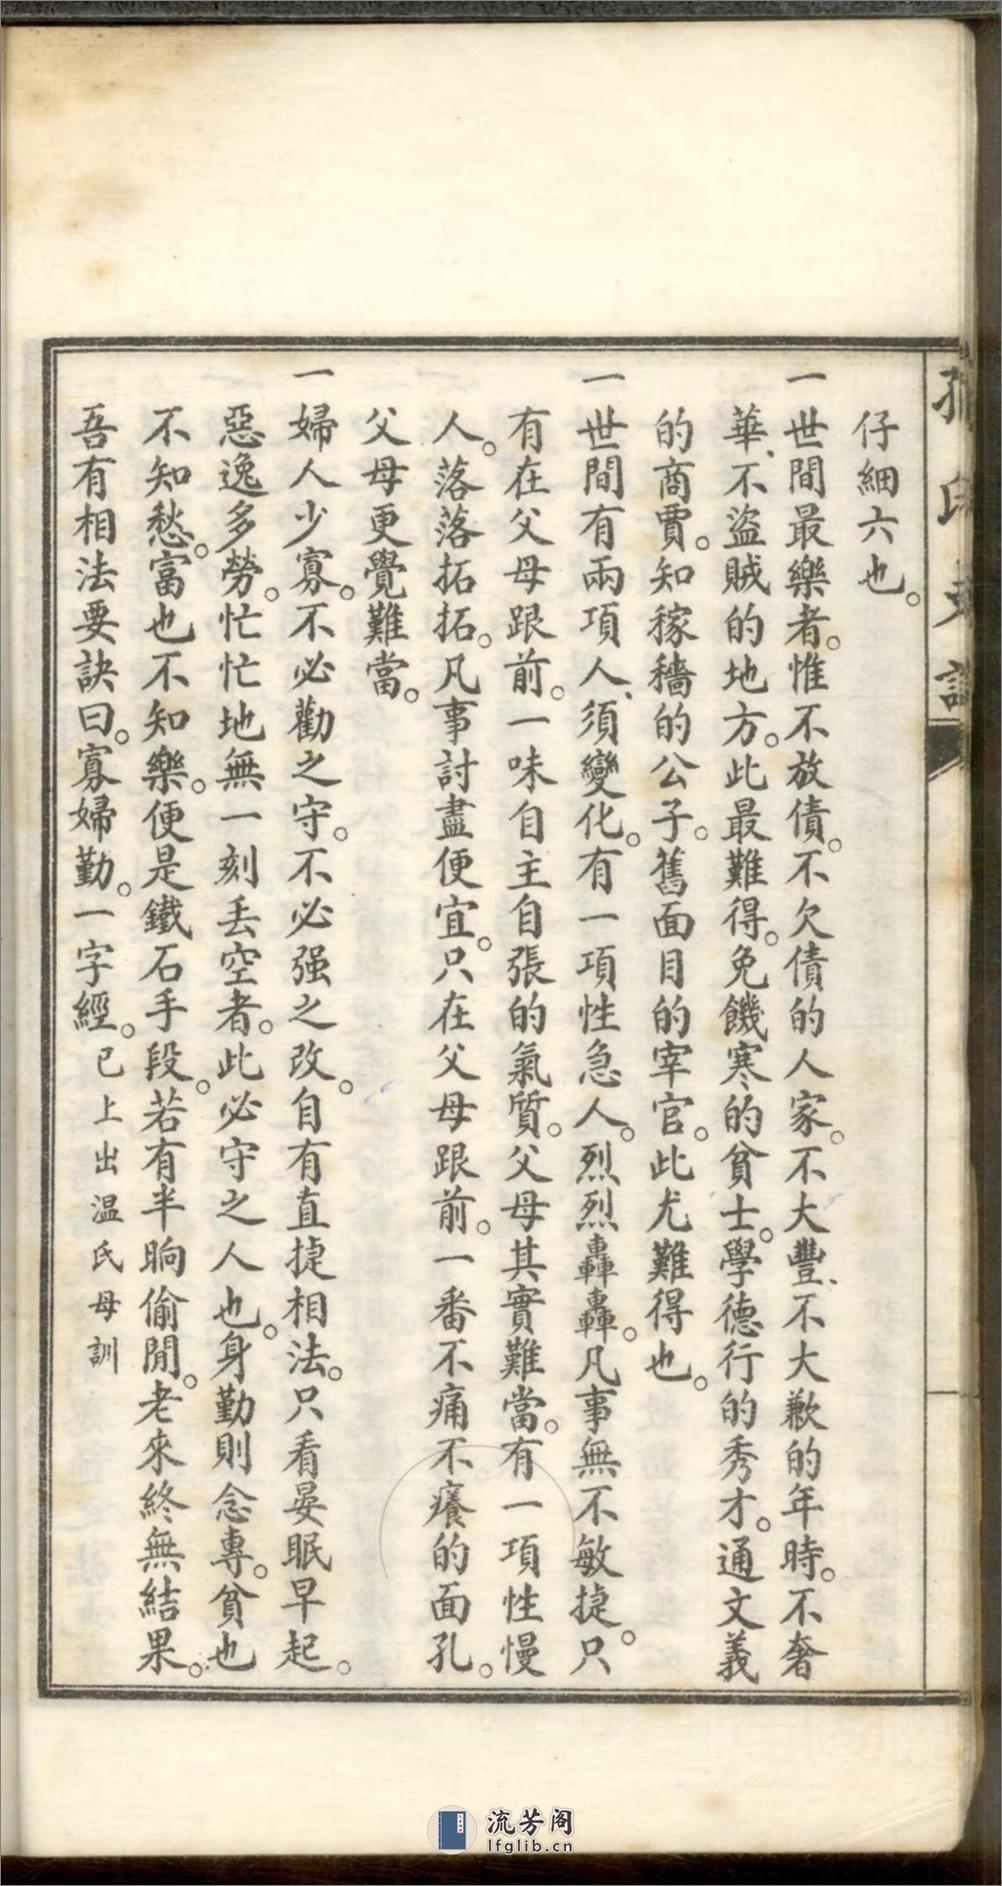 仔細六也。
一世間最樂者。惟不放債。不欠債的人家。不大豐、不大歉的年時。不奢
華、不盜賊的地方。此最難得。免饑寒的貧士。學德行的秀才。通文義
的商賈。知稼穡的公子。舊面目的宰官。此尤難得也。
一世間有兩項人、須變化。有一項性急人。烈烈轟轟。凡事無不敏捷。只
有在父母跟前。一味自主自張的氣質。父母其實難當。有一項性慢
人。落落拓拓。凡事討盡便宜。只在父母跟前。一番不痛不癢的面孔。
父母更覺難當。
一婦人少寡。不必勸之守。不必强之改。自有直捷相法。只看晏眠早起。
惡逸多勞。忙忙地無一刻丢空者。此必守之人也。身勤則念專。貧也
不知愁。富也不知樂。便是鐵石手段。若有半晌偷閒。老來終無結果。
吾有相法要訣曰。寡婦勤。一字經。已上出温氏母訓
流芳阁
lfglib.cn